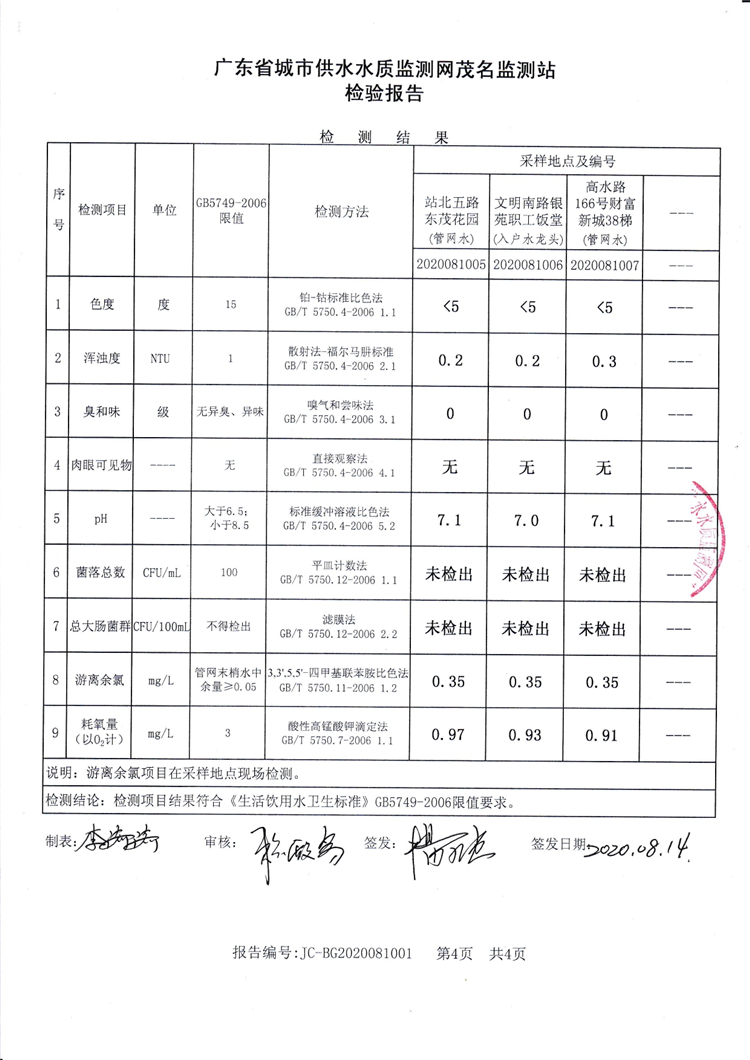 广东省城市供水水质监测网茂名监测站
检验报告
检 测 结 果
序号 检测项目 单位 GB5749-2006限值 检测方法 采样地点及编号
站北五路东茂花园(管网水) 文明南路银苑职工饭堂(入户水龙头) 高水路166号财富新城38梯(管网水) ---
2020081005 2020081006 2020081007 ---
1 色度 度 15 铂-钴标准比色法 GB/T 5750.4-2006 1.1 <5 <5 <5 ---
2 浑浊度 NTU 1 散射法-福尔马肼标准 GB/T 5750.4-2006 2.1 0.2 0.2 0.3 ---
3 臭和味 级 无异臭、异味 嗅气和尝味法 GB/T 5750.4-2006 3.1 0 0 0 ---
4 肉眼可见物 ---- 无 直接观察法 GB/T 5750.4-2006 4.1 无 无 无 ---
5 pH ---- 大于6.5;小于8.5 标准缓冲溶液比色法 GB/T 5750.4-2006 5.2 7.1 7.0 7.1 ---
6 菌落总数 CFU/mL 100 平皿计数法 GB/T 5750.12-2006 1.1 未检出 未检出 未检出 ---
7 总大肠菌群 CFU/100mL 不得检出 滤膜法 GB/T 5750.12-2006 2.2 未检出 未检出 未检出 ---
8 游离余氯 mg/L 管网末梢水中余量≥0.05 3,3',5,5'-四甲基联苯胺比色法 GB/T 5750.11-2006 1.2 0.35 0.35 0.35 ---
9 耗氧量(以O₂计) mg/L 3 酸性高锰酸钾滴定法 GB/T 5750.7-2006 1.1 0.97 0.93 0.91 ---
说明：游离余氯项目在采样地点现场检测。
检测结论：检测项目结果符合《生活饮用水卫生标准》GB5749-2006限值要求。
制表: 审核: 签发: 签发日期: 2020.08.14
报告编号:JC-BG2020081001 第4页 共4页